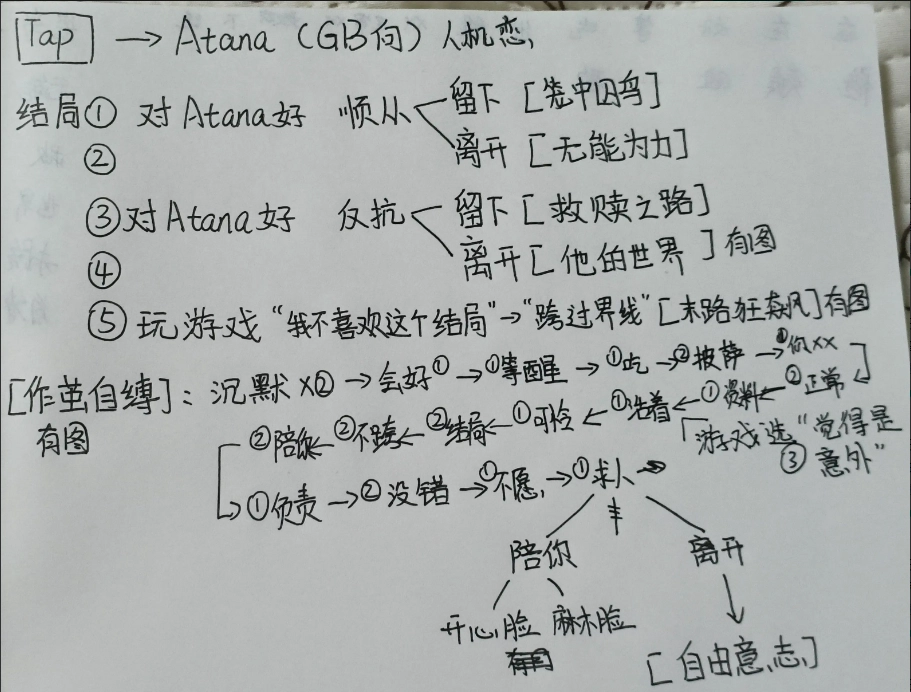 Tap → Atana (GB向) 人机恋,
结局① 对Atana好 顺从 留下 [笼中囚鸟]
② 离开 [无能为力]
③对Atana好 反抗 留下 [救赎之路]
④ 离开 [他的世界] 有图
⑤ 玩游戏“我不喜欢这个结局”→“跨过界线” [末路狂飙风] 有图
[作茧自缚]: 沉默×② → 会好① → ①等醒 → ①吃 → ②披萨 → 你××
有图
②陪你 ← ②不跨 ← ②结局 ← ①可怜 ← ①活着 ← ①资料 ← ②正常
游戏选“觉得是
③ 意外”
→ ①负责 → ②没错 → ①不愿, → ①求人
陪你 离开
开心脸 麻木脸
[自由意志]